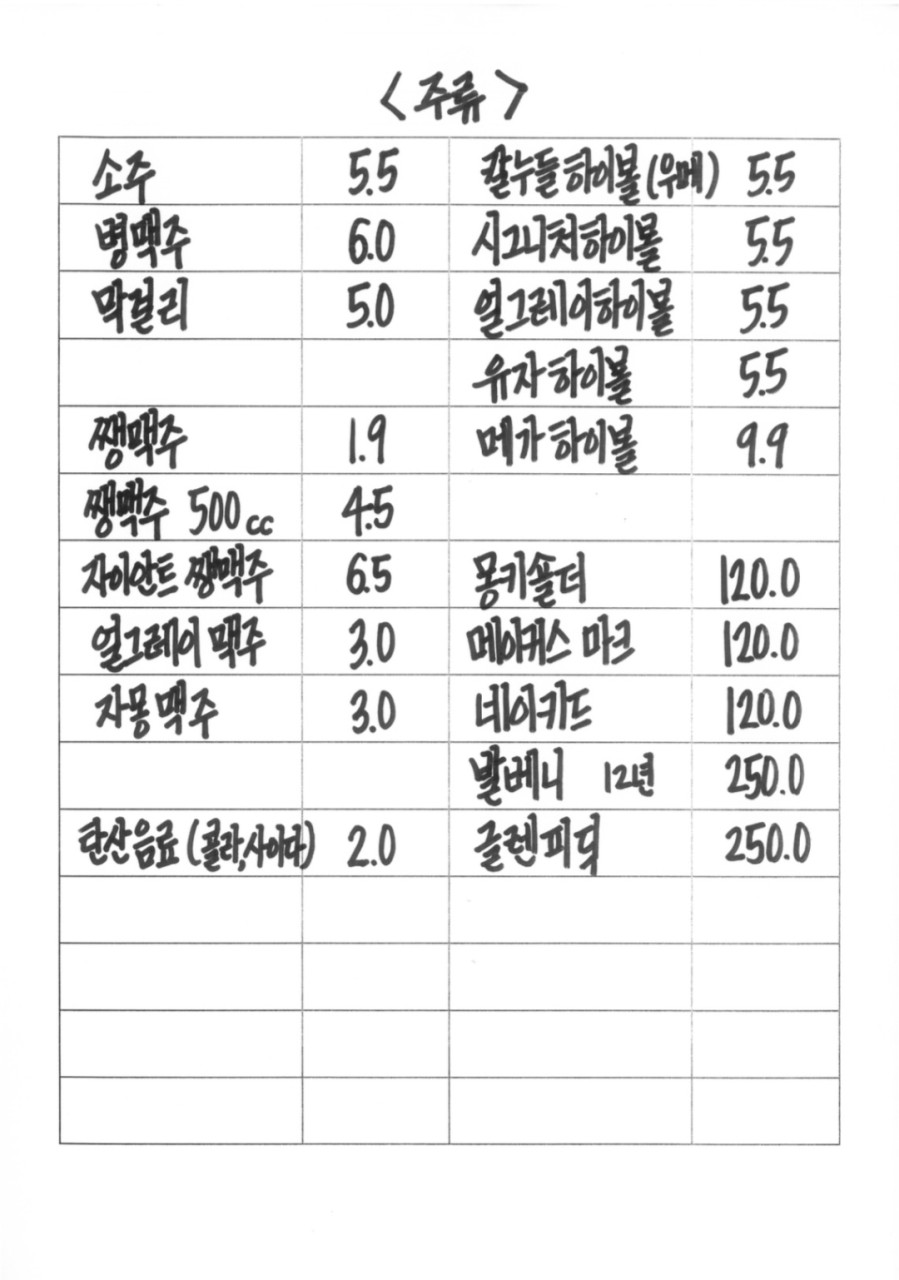 <주류>
소주 5.5 칼누들하이볼(우메) 5.5
병맥주 6.0 시그니처하이볼 5.5
막걸리 5.0 얼그레이하이볼 5.5
유자하이볼 5.5
쨍맥주 1.9 메가하이볼 9.9
쨍맥주 500cc 4.5
자이안트 쨍맥주 6.5 몽키숄더 120.0
얼그레이 맥주 3.0 메이커스 마크 120.0
자몽맥주 3.0 네이키드 120.0
발베니 12년 250.0
탄산음료(콜라,사이다) 2.0 글렌피딕 250.0